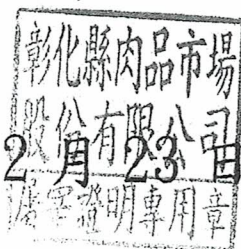 彰化縣肉品市場
股份有限公司
2月23日
證明專用章